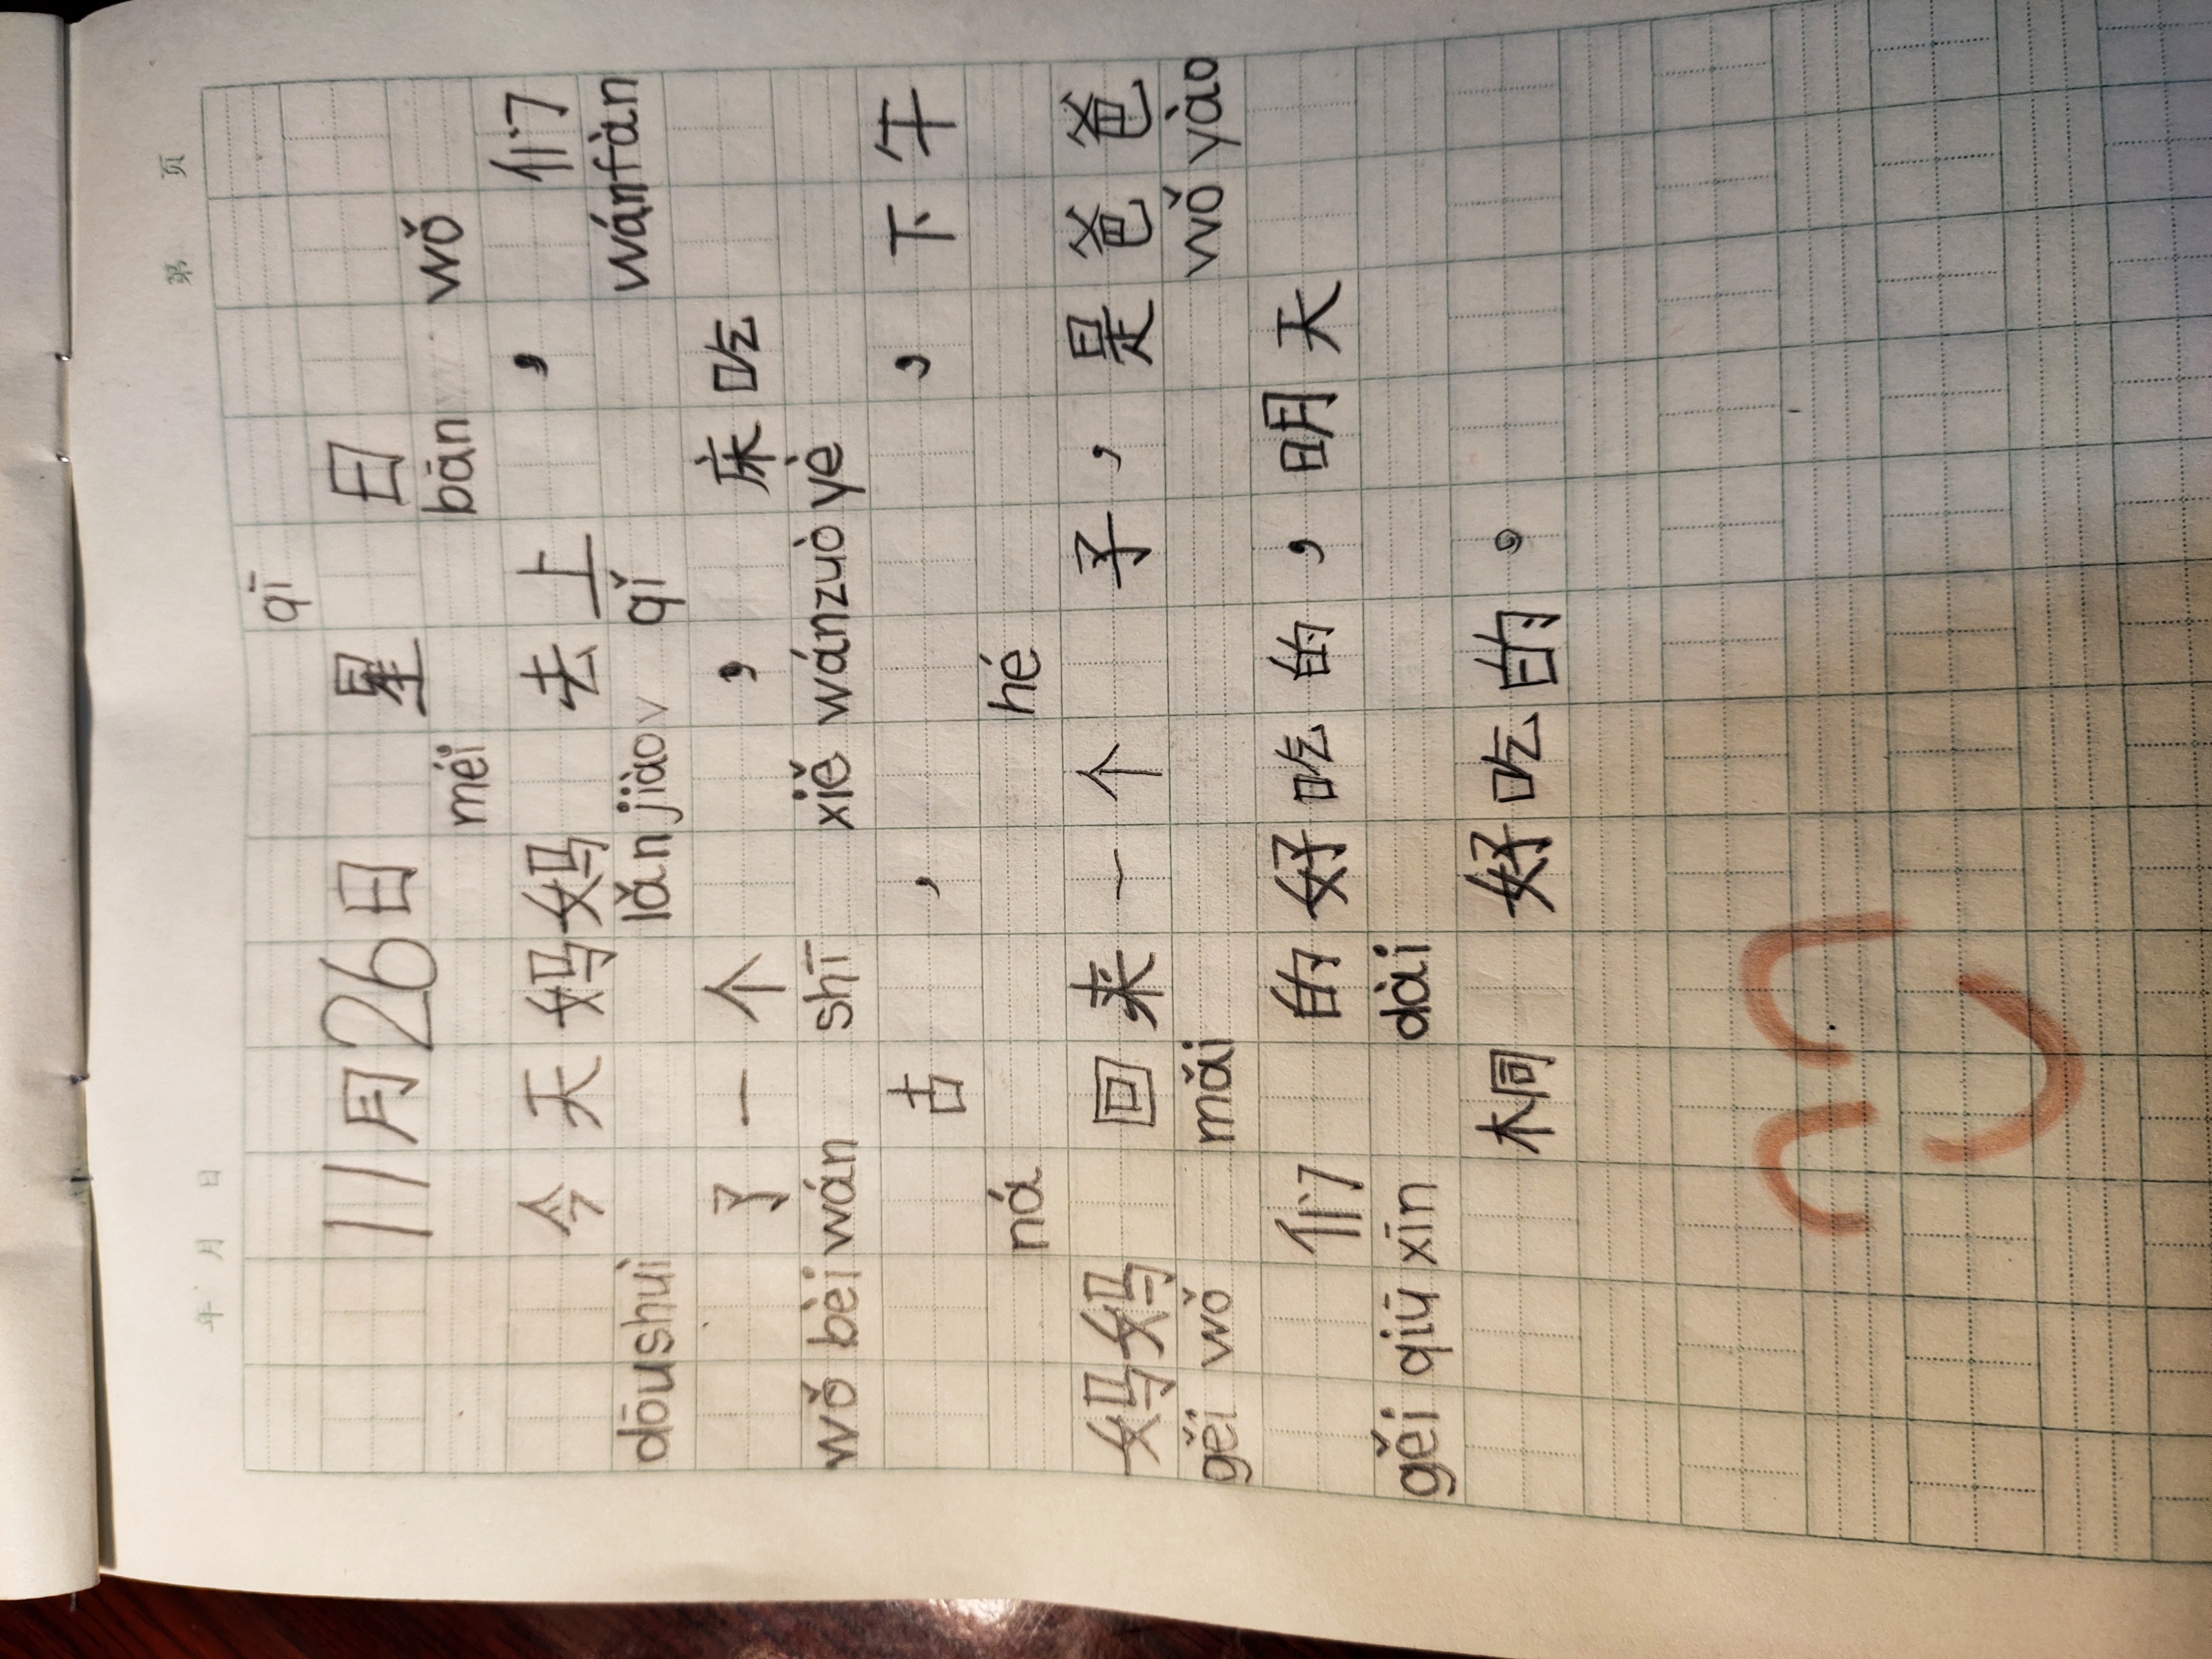 年 月 日 第 页
qī
11月26日 星 日
méi bān wǒ
今天妈妈 去上 ， 们
dōushuì lǎnjiào qǐ wánfàn
了一个 ， 床吃
wǒ bèi wán shī xiě wánzuòyè
古 ， ， 下午
ná hé
妈妈 回来一个 子，是爸爸
gěi wǒ mǎi wǒ yào
们 的好吃的，明天
gěi qiū xīn dài
桐 好吃的。